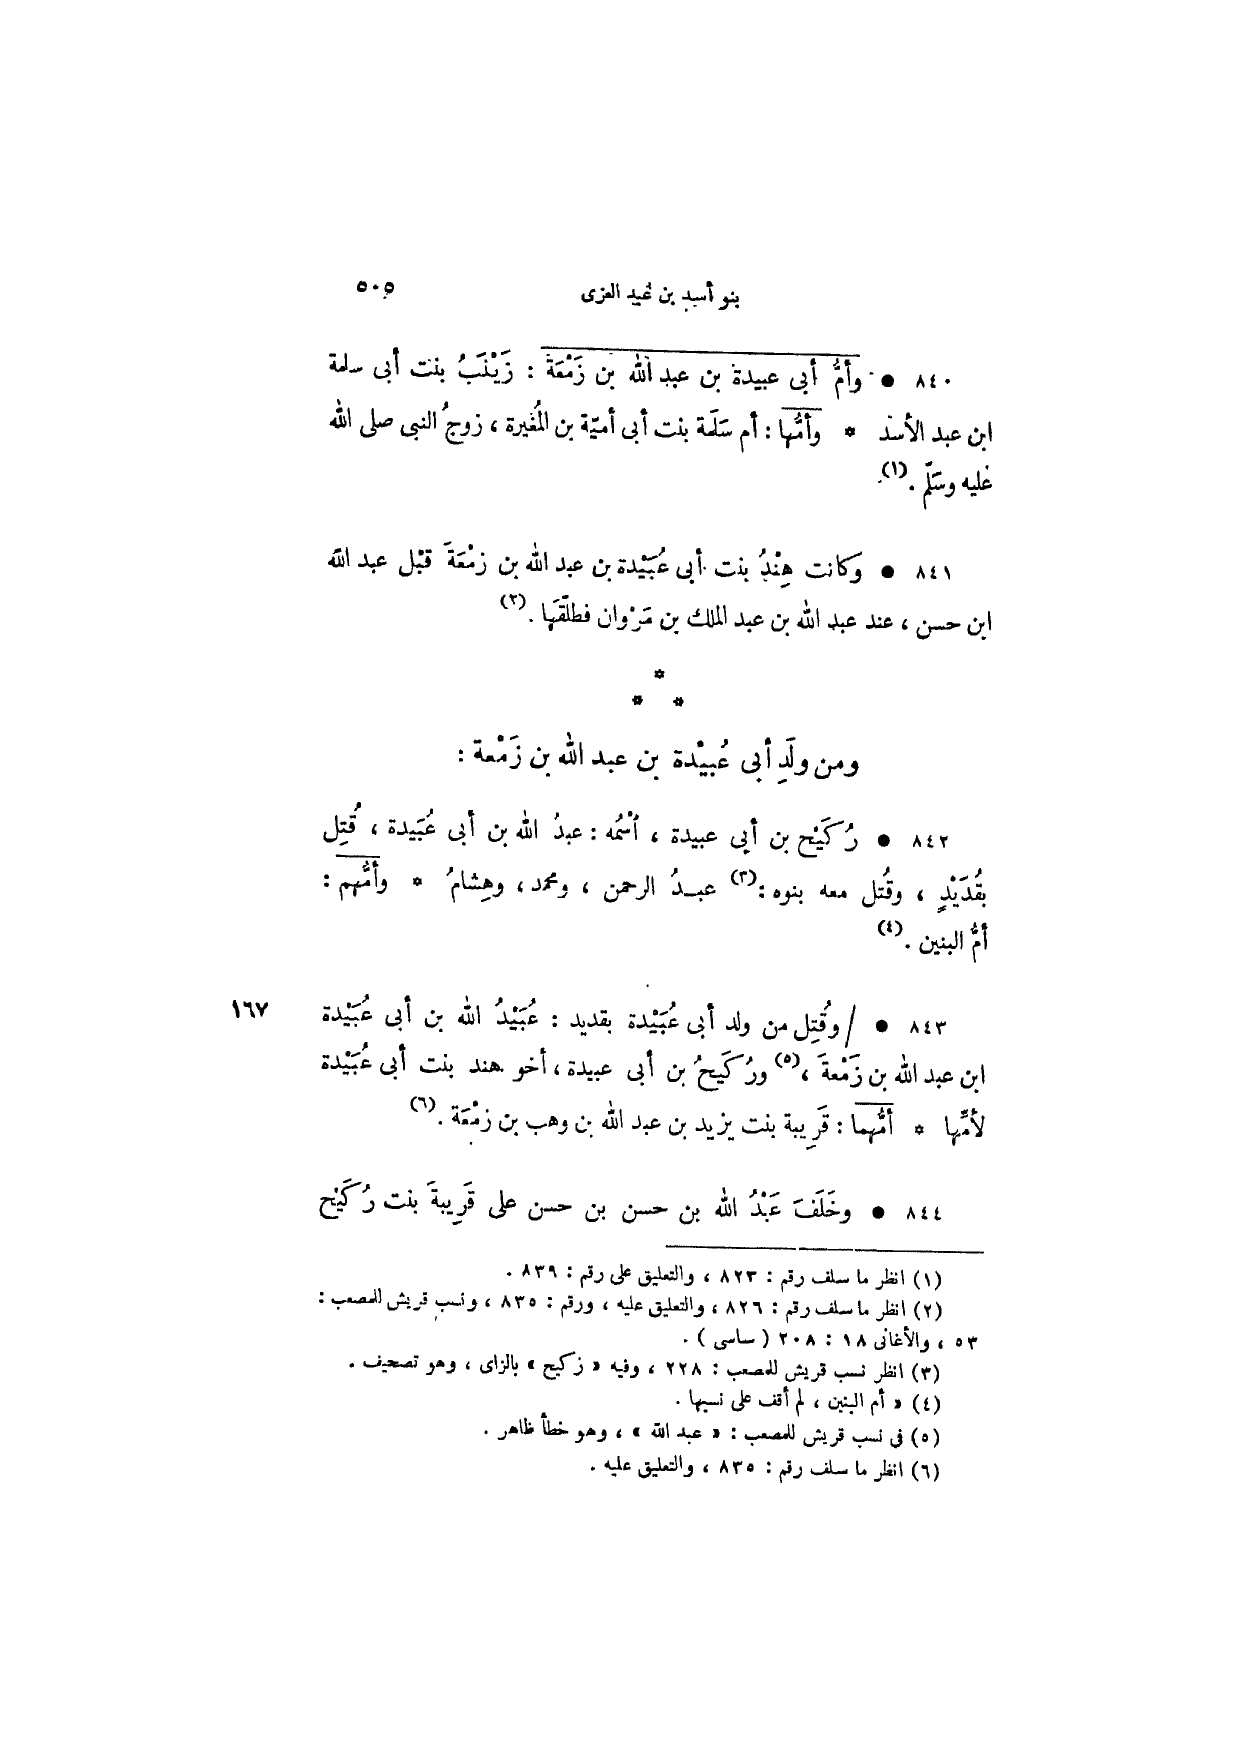 بنو أسد بن عبد العزى ٥٠٥
٨٤٠ ● وأمُّ أبى عبيدة بن عبد الله بن زَمْعَة : زَيْنَبُ بنت أبى سلمة
ابن عبد الأسد * وأمُّها : أم سَلَمة بنت أبى أميّة بن المُغيرة ، زوجُ النبى صلى الله
عليه وسَلّم . (١)
٨٤١ ● وكانت هِنْدُ بنت أبى عُبَيْدة بن عبد الله بن زمْعَةَ قبْل عبد الله
ابن حسن ، عند عبد الله بن عبد الملك بن مَرْوان فطلّقَها . (٢)
*
* *
ومن ولَدِ أبى عُبيْدة بن عبد الله بن زَمْعة :
٨٤٢ ● رُكَيْح بن أبى عبيدة ، ٱسْمُه : عبدُ الله بن أبى عُبَيدة ، قُتِل
بقُدَيْدٍ ، وقُتل معه بنوه : (٣) عبدُ الرحمن ، ومحمد ، وهِشامُ * وأمُّهم :
أمُّ البنين . (٤)
٨٤٣ ● / وقُتِل من ولد أبى عُبَيْدة بقديد : عُبَيْدُ الله بن أبى عُبَيْدة ١٦٧
ابن عبد الله بن زَمْعةَ ، (٥) ورُكَيحُ بن أبى عبيدة ، أخو هند بنت أبى عُبَيْدة
لأمِّها * أمُّهما : قَرِيبة بنت يزيد بن عبد الله بن وهب بن زمْعَة . (٦)
٨٤٤ ● وخَلَفَ عَبْدُ الله بن حسن بن حسن على قَرِيبةَ بنت رُكَيْح
(١) انظر ما سلف رقم : ٨٢٣ ، والتعليق على رقم : ٨٣٩ .
(٢) انظر ما سلف رقم : ٨٢٦ ، والتعليق عليه ، ورقم : ٨٣٥ ، ونسب قريش للمصعب :
٥٣ ، والأغانى ١٨ : ٢٠٨ ( ساسى ) .
(٣) انظر نسب قريش للمصعب : ٢٢٨ ، وفيه « زكيح » بالزاى ، وهو تصحيف .
(٤) « أم البنين ، لم أقف على نسبها .
(٥) فى نسب قريش للمصعب : « عبد الله » ، وهو خطأ ظاهر .
(٦) انظر ما سلف رقم : ٨٣٥ ، والتعليق عليه .